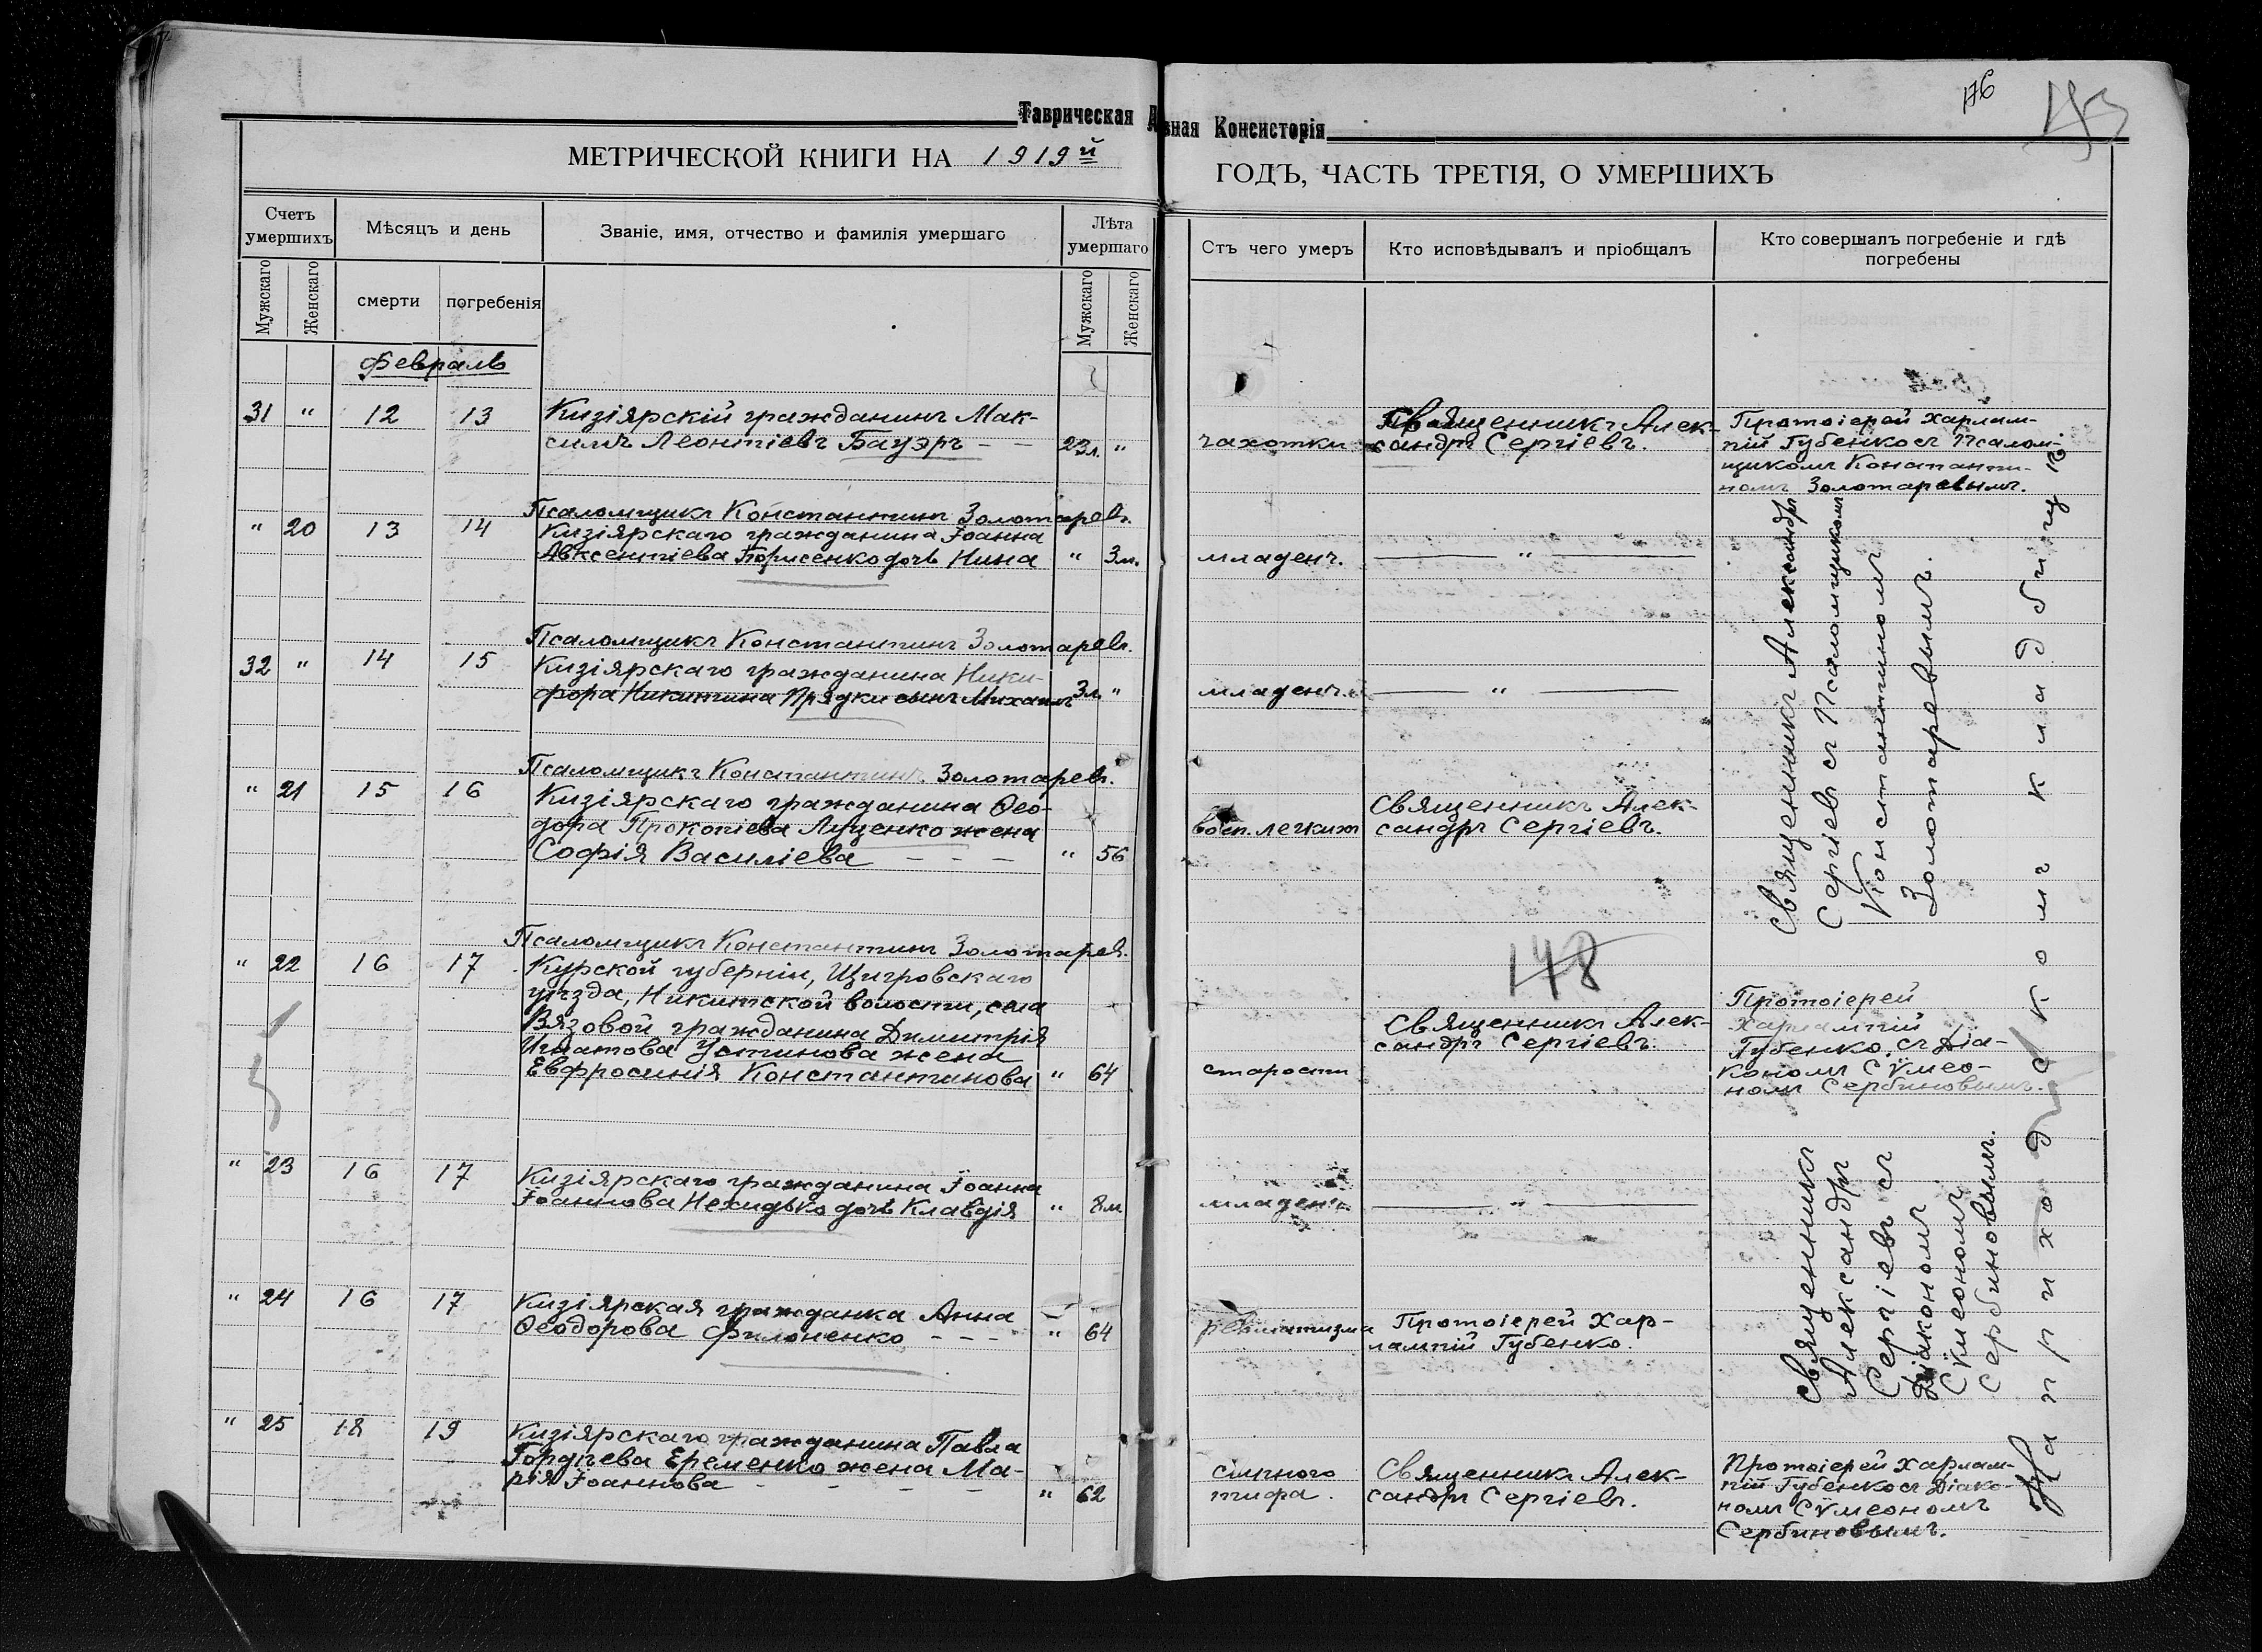 Таврическая
вная Консисторія
176
МЕТРИЧЕСКОЙ КНИГИ НА 1919й
ГОДЪ, ЧАСТЬ ТРЕТІЯ, О УМЕРШИХЪ
Счетъ умершихъ
Мужскаго
Женскаго
Мѣсяцъ и день
смерти
погребенія
Званіе, имя, отчество и фамилія умершаго
Лѣта умершаго
Мужскаго
Женскаго
Стъ чего умеръ
Кто исповѣдывалъ и пріобщалъ
Кто совершалъ погребеніе и гдѣ
погребены
Февраль
31 " 12 13
Кизіярскій гражданинъ Мак-
симъ Леонтіевъ Бауэръ - - 23л. "
чахотки
Священникъ Алек-
сандръ Сергіевъ.
Протоіерей Харлам-
пій Губенко съ Псалом-
щикомъ Константи-
номъ Золотаревымъ.
Псаломщикъ Константинъ Золотаревъ.
" 20 13 14
Кизіярскаго гражданина Іоанна
Авксентіева дочь Нина " 3м.
младенч.
"
32 " 14 15
Псаломщикъ Константинъ Золотаревъ.
Кизіярскаго гражданина Ники-
фора Никитина Прядки сынъ Михаилъ "
младенч.
"
Псаломщикъ Константинъ Золотаревъ.
" 21 15 16
Кизіярскаго гражданина Ѳео-
дора Прокопіева Луценко жена
Софія Василіева - - - " 56
восп. легкихъ
Священникъ Алек-
сандръ Сергіевъ.
Священникъ Александръ
Сергіевъ съ Псаломщикомъ
Константиномъ
Золотаревымъ.
Псаломщикъ Константинъ Золотаревъ.
148
" 22 16 17
Курской губерніи, Щигровскаго
уѣзда, Никитской волости, села
Вязовой гражданина Димитрія
Игнатова Устинова жена
Евфросинія Константинова " 64
старости
Священникъ Алек-
сандръ Сергіевъ.
Протоіерей
Харлампій
Губенко съ Діа-
кономъ Сѵмео-
номъ Сербиновымъ.
" 23 16 17
Кизіярскаго гражданина Іоанна
Іоаннова дочь Клавдія " 8м
младенч.
"
" 24 16 17
Кизіярская гражданка Анна
Ѳеодорова Филоненко - - - " 64
ревматизма
Протоіерей Хар-
лампій Губенко.
Священникъ
Александръ
Сергіевъ съ
Діакономъ
Сѵмеономъ
Сербиновымъ.
" 25 18 19
Кизіярскаго гражданина Павла
Гордѣева Еременко жена Ма-
рія Іоаннова - - - - " 62
сыпного
тифа.
Священникъ Алек-
сандръ Сергіевъ.
Протоіерей Харлам-
пій Губенко съ Діако-
номъ Сѵмеономъ
Сербиновымъ.
На приходскомъ кладбищѣ